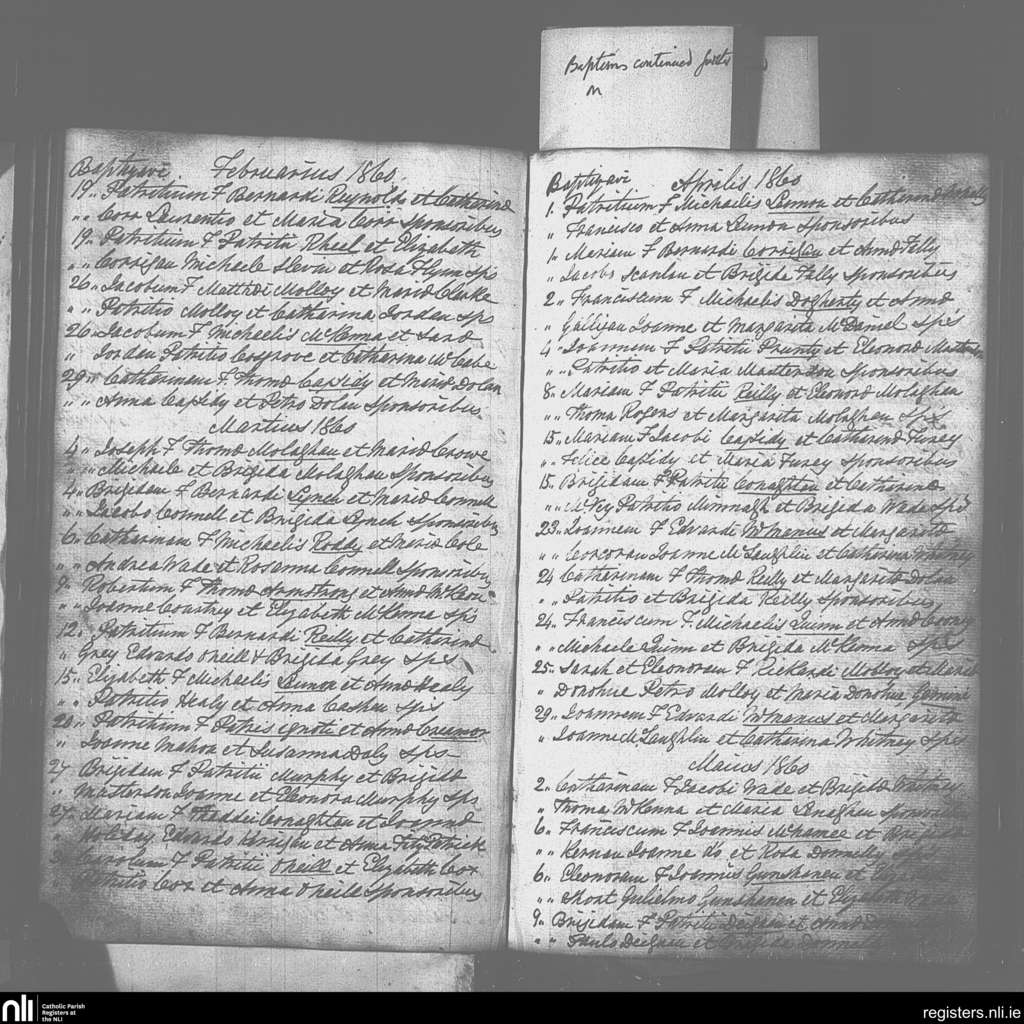 Baptisms continued
Baptizavi Februarius 1860.
19. Patritium F Bernardi Reynolds et Catherina
" " Corr Laurentio et Maria Corr Sponsoribus
19. Patritium F Patritii Rheel et Elizabeth
" " Corrigan Michaele Slevan et Rosa Flynn Sps
26 " Jacobum F Matthei Molloy et Maria Clarke
" " Patritio Molloy et Catharina Jordan Sps
26. Jacobum F Michaelis McKenna et Sara
" Jordan Patritio Cosgrove et Catharina McCabe
29 " Catharinam F. Thoma Cassidy et Maria Dolan
" " Anna Cassidy et Petro Dolan Sponsoribus.
Martius 1860
4 " Joseph F Thoma Molaghan et Maria Crowe
" " Michaele et Brigida Molaghan Sponsoribus
4 " Brigidam F Bernardi Lynch et Maria Connell
" " Jacobo Connell et Brigida Lynch Sponsoribus
6 " Catharinam F Michaelis Roddy et Maria Cole
" " Andrea Wade et Rosanna Connell Sponsoribus
9 " Robertum F Thoma Armstrong et Anna McKeon
" " Joanne Courtney et Elizabeth McKenna Sps
12 " Patritium F Bernardi Reilly et Catherina
" Grey Edvardo O'neill & Brigida Grey Sps
15 " Elizabeth F Michaelis Lemon et Anna Healy
" " Patritio Healy et Anna Cashen Sps
20 " Patritium F Patris ignoti et Anna Creenor
" Joanne Mahon et Susanna Daly Sps
27 Brigidam F Patritii Murphy et Brigida
" Masterson Joanne et Eleonora Murphy Sps
27 " Mariam F Thaddei Conaghten et Joanna
" Holiday Edvardo Kerrigan et Anna FitzPatrick
Carolum F Patritii O'neill et Elizabeth Cox
Patritio Cox et Anna O'neill Sponsoribus
Baptizavi Aprilis 1860
1. Patritium F Michaelis Lennon et Catherina
" Francisco et Anna Lennon Sponsoribus
1 " Mariam F Bernardi Corrigan et Anna Fally
" Jacobo Scanlan et Brigida Fally Sponsoribus
2 " Franciscum F Michaelis Dogherty et Anna
" Galligan Joanne et Margarita McDaniel Sps
4 " Joannem F Patritii Prunty et Eleonora Masterson
" " Patritio et Maria Masterson Sponsoribus
8 " Mariam F Patritii Reilly et Eleonora Molaghan
" " Thoma Rogers et Margarita Molaghan Sps
15 " Mariam F Jacobi Cassidy et Catherina Furey
" " Felice Cassidy et Maria Furey Sponsoribus
15 " Brigidam F Patritii Conaghten et Catherina
" " McKey Patritio Mimnagh et Brigida Wade Sps
23 " Joannem F Edvardi McManus et Margarita
" " Corcoran Joanne McLaughlin et Catharina Whitney
24 Catharinam F Thoma Reilly et Margarita Dolan
" " Patritio et Brigida Reilly Sponsoribus
24 " Franciscum F. Michaelis Quinn et Anna Cooney
" " Michaele Quinn et Brigida McKenna Sps
25 " Sarah et Eleonoram F Rickardi Molloy et Maria
" Donohue Petro Molloy et Maria Donohue Gemini
29 " Joannem F Edvardi McManus et Margarita
" Joanne McLaughlin et Catharina Whitney Sps
Maius 1860
2 " Catharinam F Jacobi Wade et Brigida Whitney
" Thoma McKenna et Maria Lenaghan Sponsoribus
6 " Franciscum F Joannis McNamee et Brigida
" " Kernan Joanne do et Rosa Donnelly
6 " Eleonoram F Joannis Gunshanen et
" " Short Gulielmo Gunshanen et Elizabeth
9 " Brigidam F Patritii Deignan et Anna
" " Paulo Deignan et Brigida Donnelly
nli
Catholic Parish
Registers at
the NLI
registers.nli.ie